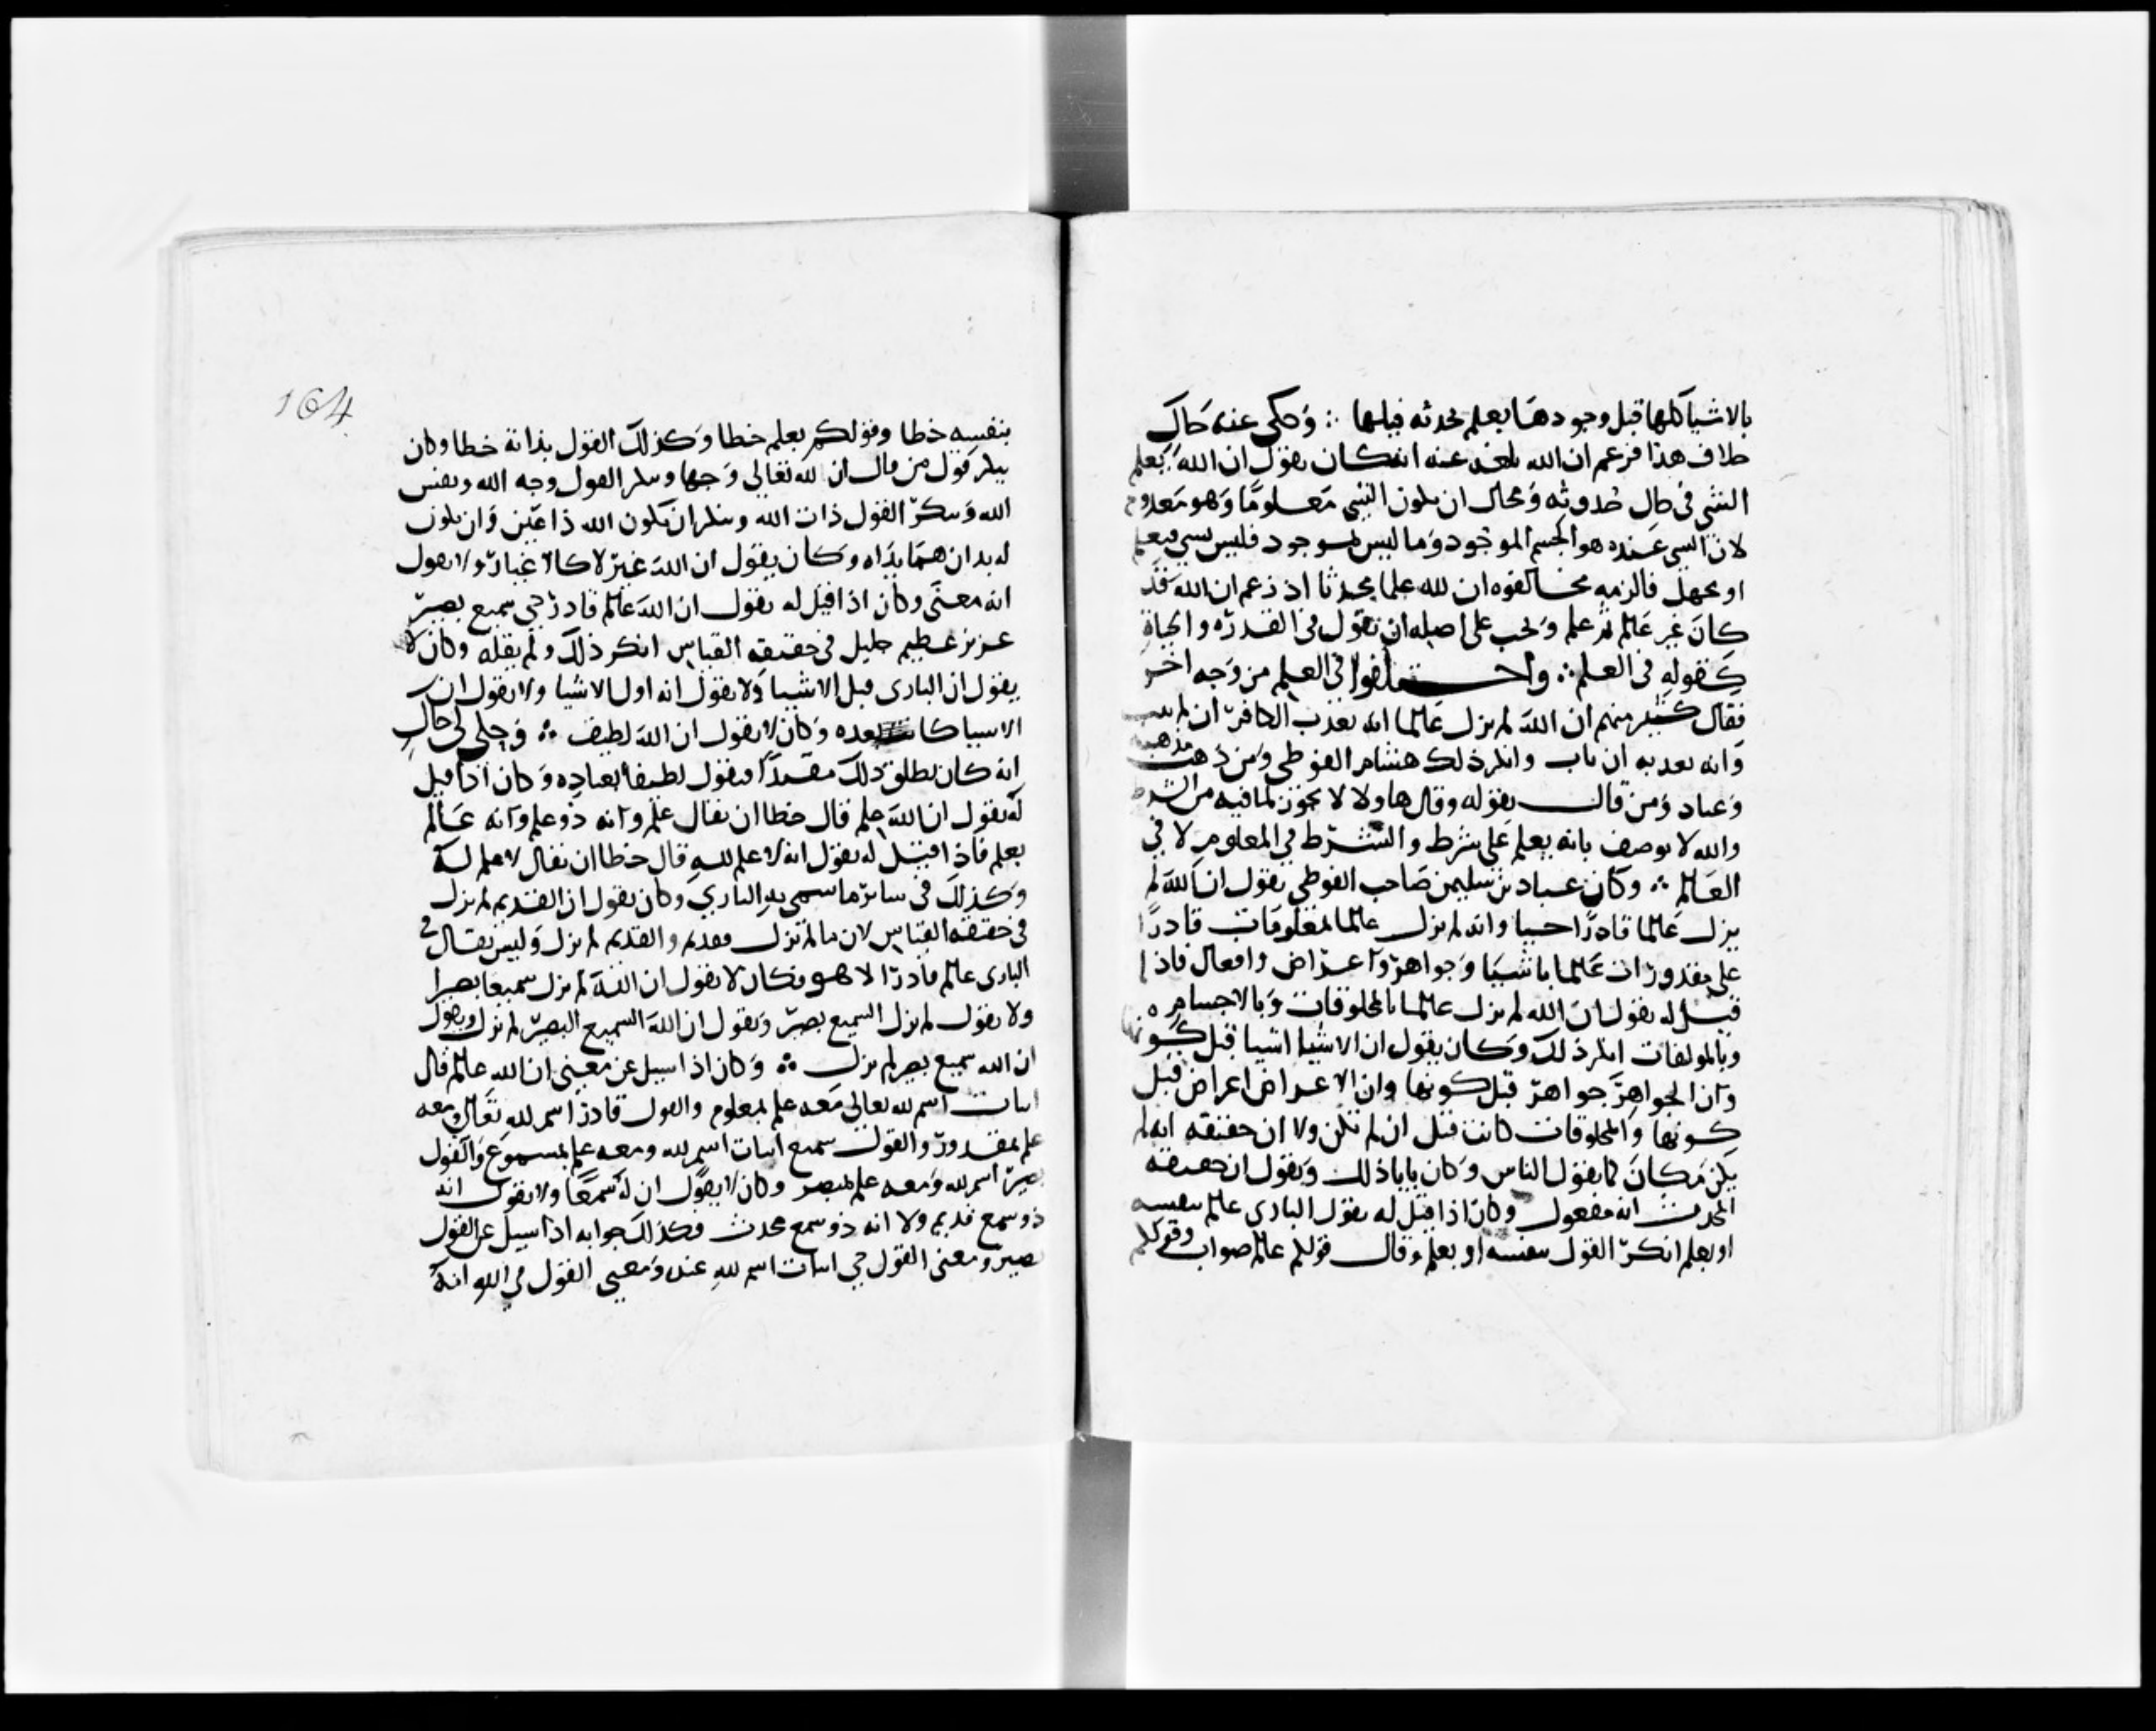 بالاشيا كلها قبل وجودها بعلم محدثه قبلها ∴ وحكى عنه حاك
خلاف هذا فزعم ان الله بلغه عنه انه كان يقول ان الله يعلم
الشي في حال حدوثه ومحال ان يكون الشي معلوما وهو معدوم
لان الشي عنده هو الجسم الموجود وما ليس بموجود فليس بشي فيعلم
او يجهل فالزمه مخالفوه ان لله علما محدثا اذ زعم ان الله قد
كان غير عالم ثم علم ويجب على اصله ان يقول في القدرة والحياة
كقوله في العلم ∴ واختلفوا في العلم من وجه اخر
فقال كثير منهم ان الله لم يزل عالما انه يعذب الكافر ان لم يتب
وانه لا يعذبه ان تاب وانكر ذلك هشام الفوطي ومن ذهب مذهبه
وعباد ومن قال بقوله وقال هاولا لا يجوز لما فيه من الشرط
والله لا يوصف بانه يعلم على شرط والشرط في المعلوم لا في
العالم ∴ وكان عباد بن سليمن صاحب الفوطي يقول ان الله لم
يزل عالما قادرا حيا وانه لم يزل عالما بمعلومات قادرا
على مقدورات عالما باشيا وجواهر واعراض وافعال فاذا
قيل له يقول ان الله لم يزل عالما بالمخلوقات وبالاجسام
وبالمولفات انكر ذلك وكان يقول ان الاشيا اشيا قبل كونها
وان الجواهر جواهر قبل كونها وان الاعراض اعراض قبل
كونها والمخلوقات كانت قبل ان لم تكن ولا ان حقيقته انه لم
يكن مكان كما يقول الناس وكان يابا ذلك ويقول ان حقيقة
المحدث انه مفعول وكان اذا قيل له يقول الباري عالم بنفسه
او بعلم انكر القول بنفسه او بعلم وقال قولكم عالم صواب وقولكم
164
بنفسه خطا وقولكم بعلم خطا وكذلك القول بذاته خطا وكان
ينكر قول من قال ان لله تعالى وجها وينكر القول وجه الله ونفس
الله وينكر القول ذات الله وينكر ان يكون الله ذا عين وان يكون
له يدان هما يداه وكان يقول ان الله غير لا كالاغيار ولا يقول
انه معنى وكان اذا قيل له يقول ان الله عالم قادر حي سميع بصير
عزيز عظيم جليل في حقيقة القياس انكر ذلك ولم يقله وكان لا
يقول ان الباري قبل الاشيا ولا يقول انه اول الاشيا ولا يقول ان
الاشيا كانت بعده وكان لا يقول ان الله لطيف ∴ وحكى لي حاك
انه كان يطلق ذلك مقيدا فيقول لطيفا بعباده وكان اذا قيل
له يقول ان لله علم قال خطا ان يقال علم وانه ذو علم وانه عالم
بعلم فاذا قيل له يقول انه لا علم لله قال خطا ان يقال لا علم له
وكذلك في سائر ما سمي به الباري وكان يقول ان القديم لم يزل
في حقيقة القياس لان ما لم يزل فقديم والقديم لم يزل وليس يقال في
الباري عالم قادرا الا هو وكان لا يقول ان الله لم يزل سميعا بصيرا
ولا يقول لم يزل السميع بصير ويقول ان الله السميع البصير لم يزل ويقول
ان الله سميع بصير لم يزل ∴ وكان اذا سيل عن معنى ان الله عالم قال
اثبات اسم لله تعالى معه علم بمعلوم والقول قادر اسم لله تعالى ومعه
علم بمقدور والقول سميع اثبات اسم لله ومعه علم بمسموع والقول
بصير اسم لله ومعه علم بمبصر وكان لا يقول ان له سمعا ولا يقول انه
ذو سمع قديم ولا انه ذو سمع محدث وكذلك جوابه اذا سيل عن القول
بصير ومعنى القول حي اثبات اسم لله عنده ومعنى القول في الله انه